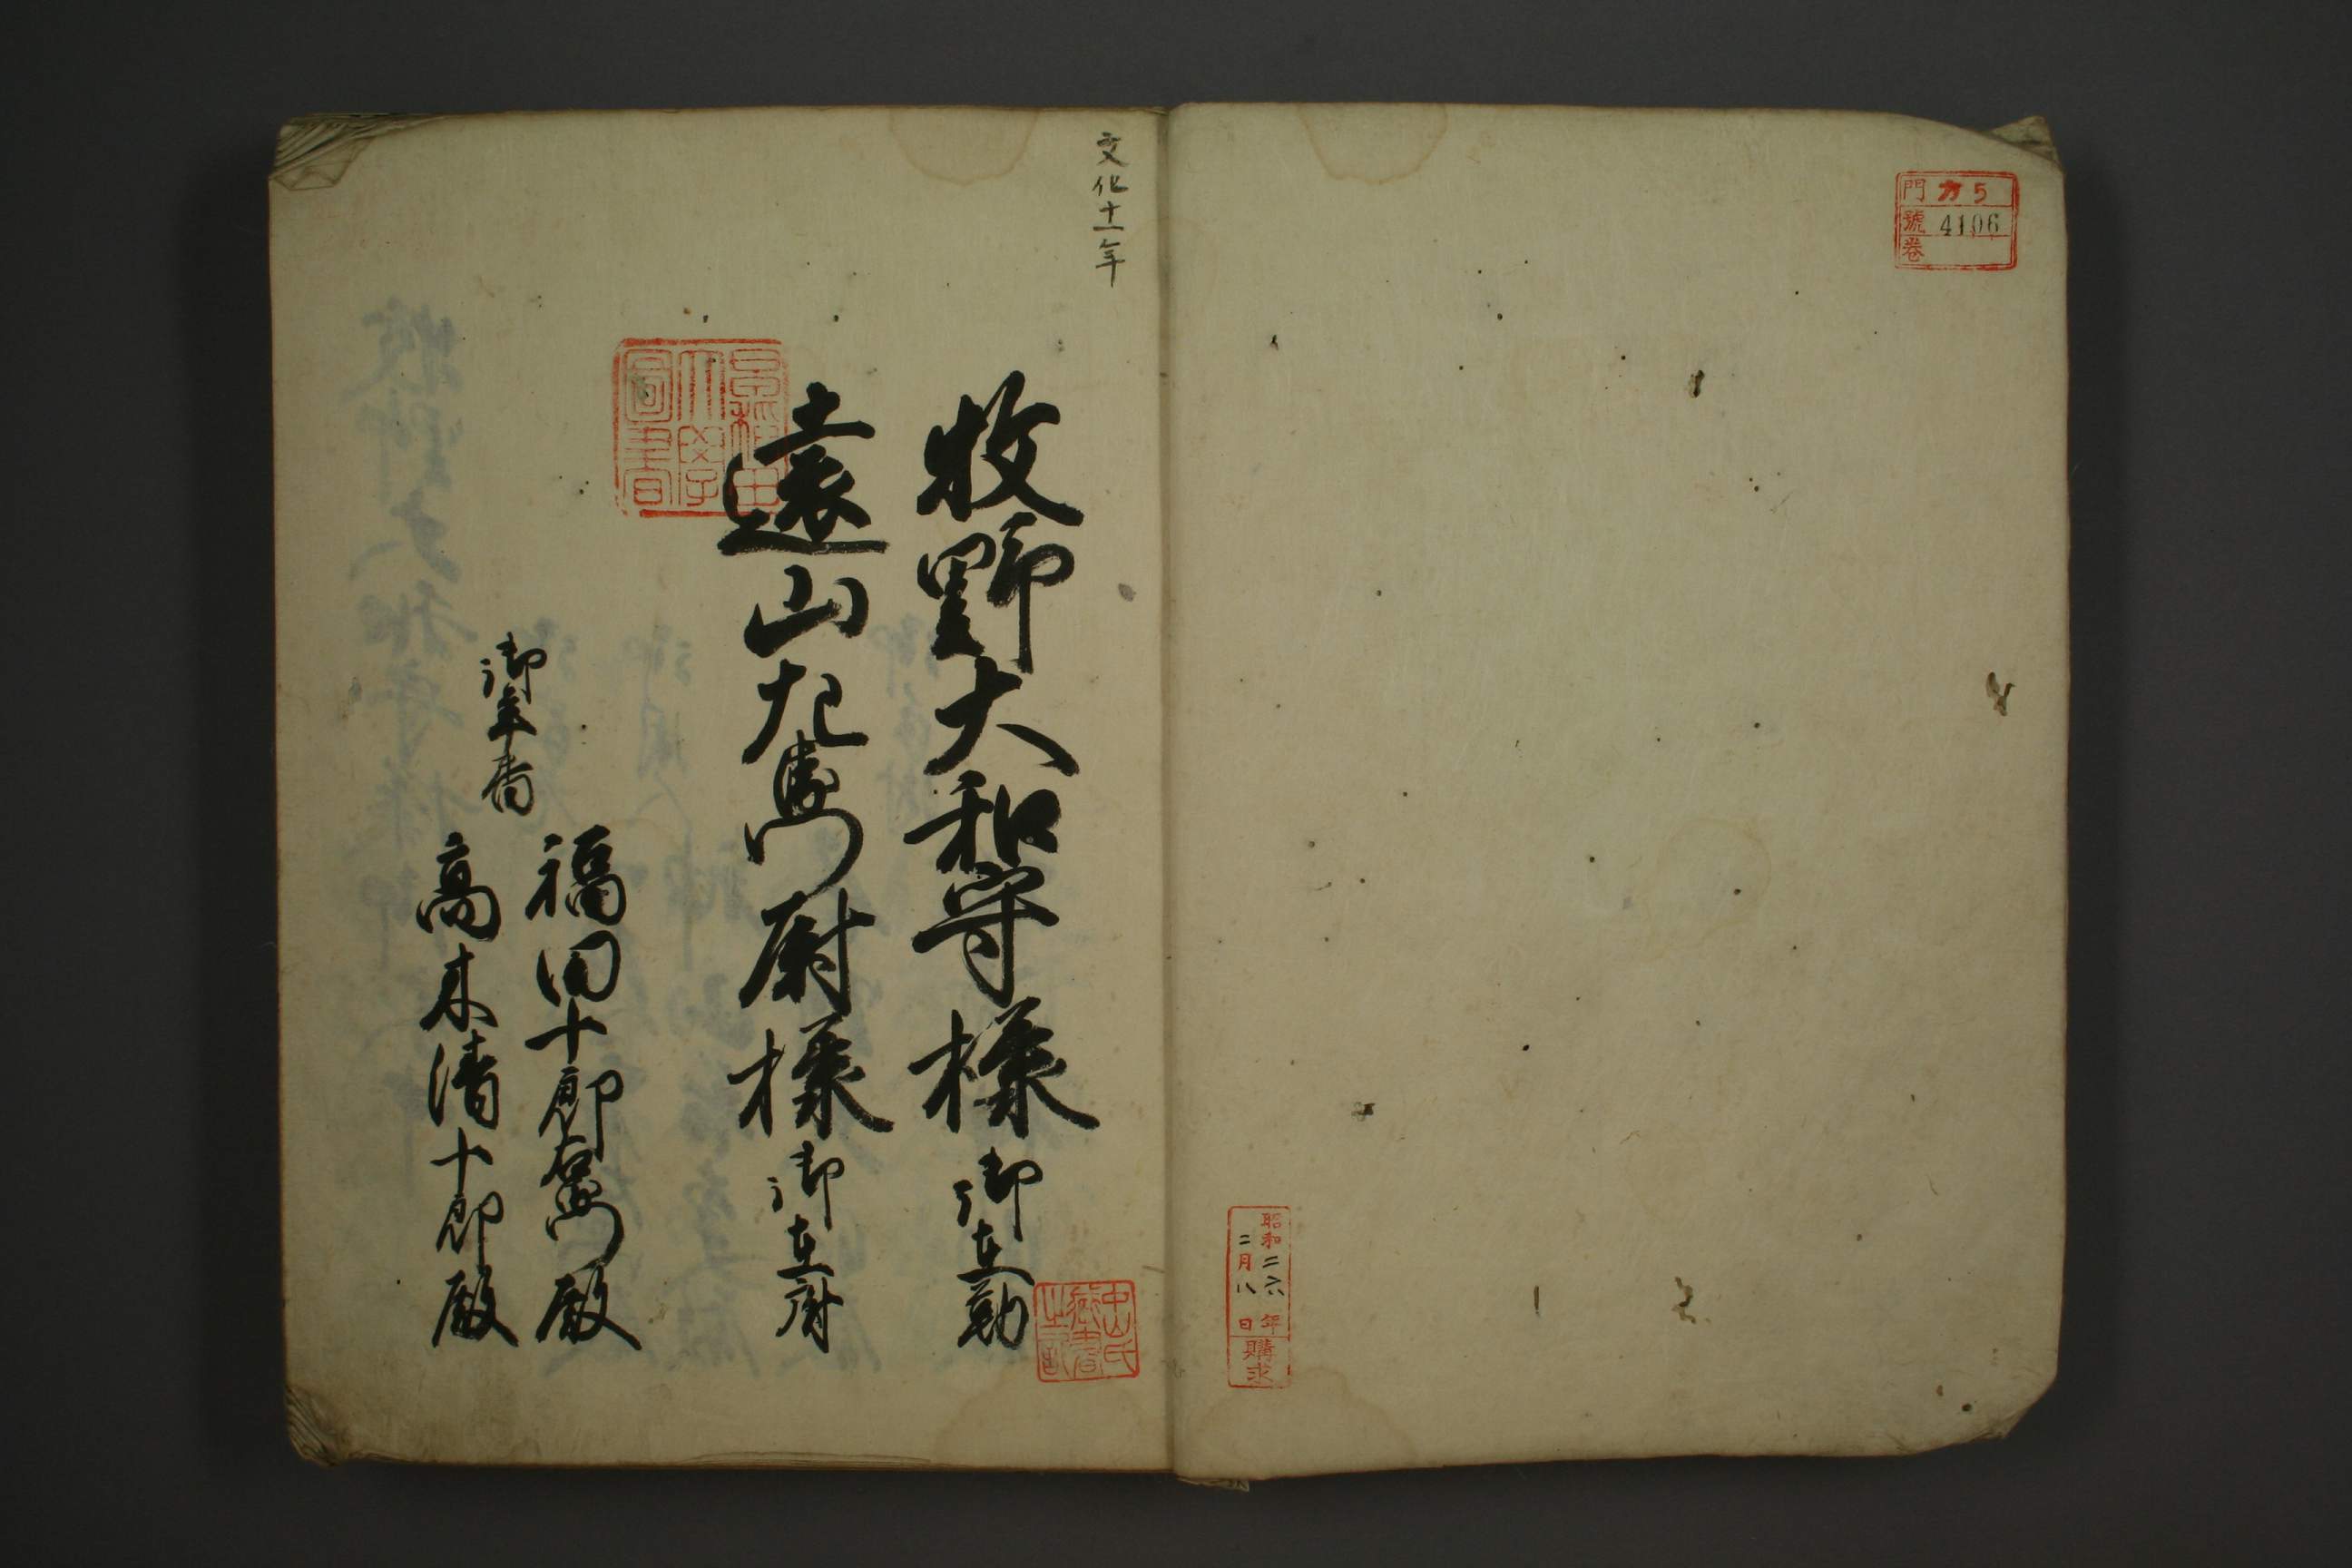 門 カ5
號 4106
卷
昭和二六年
二月八日
購求
文化十一年
牧野大和守様御在勤
遠山左衛門尉様御在府
早稲田大學圖書
中山氏蔵書之記
御年番
福田十郎右衛門殿
高木清十郎殿